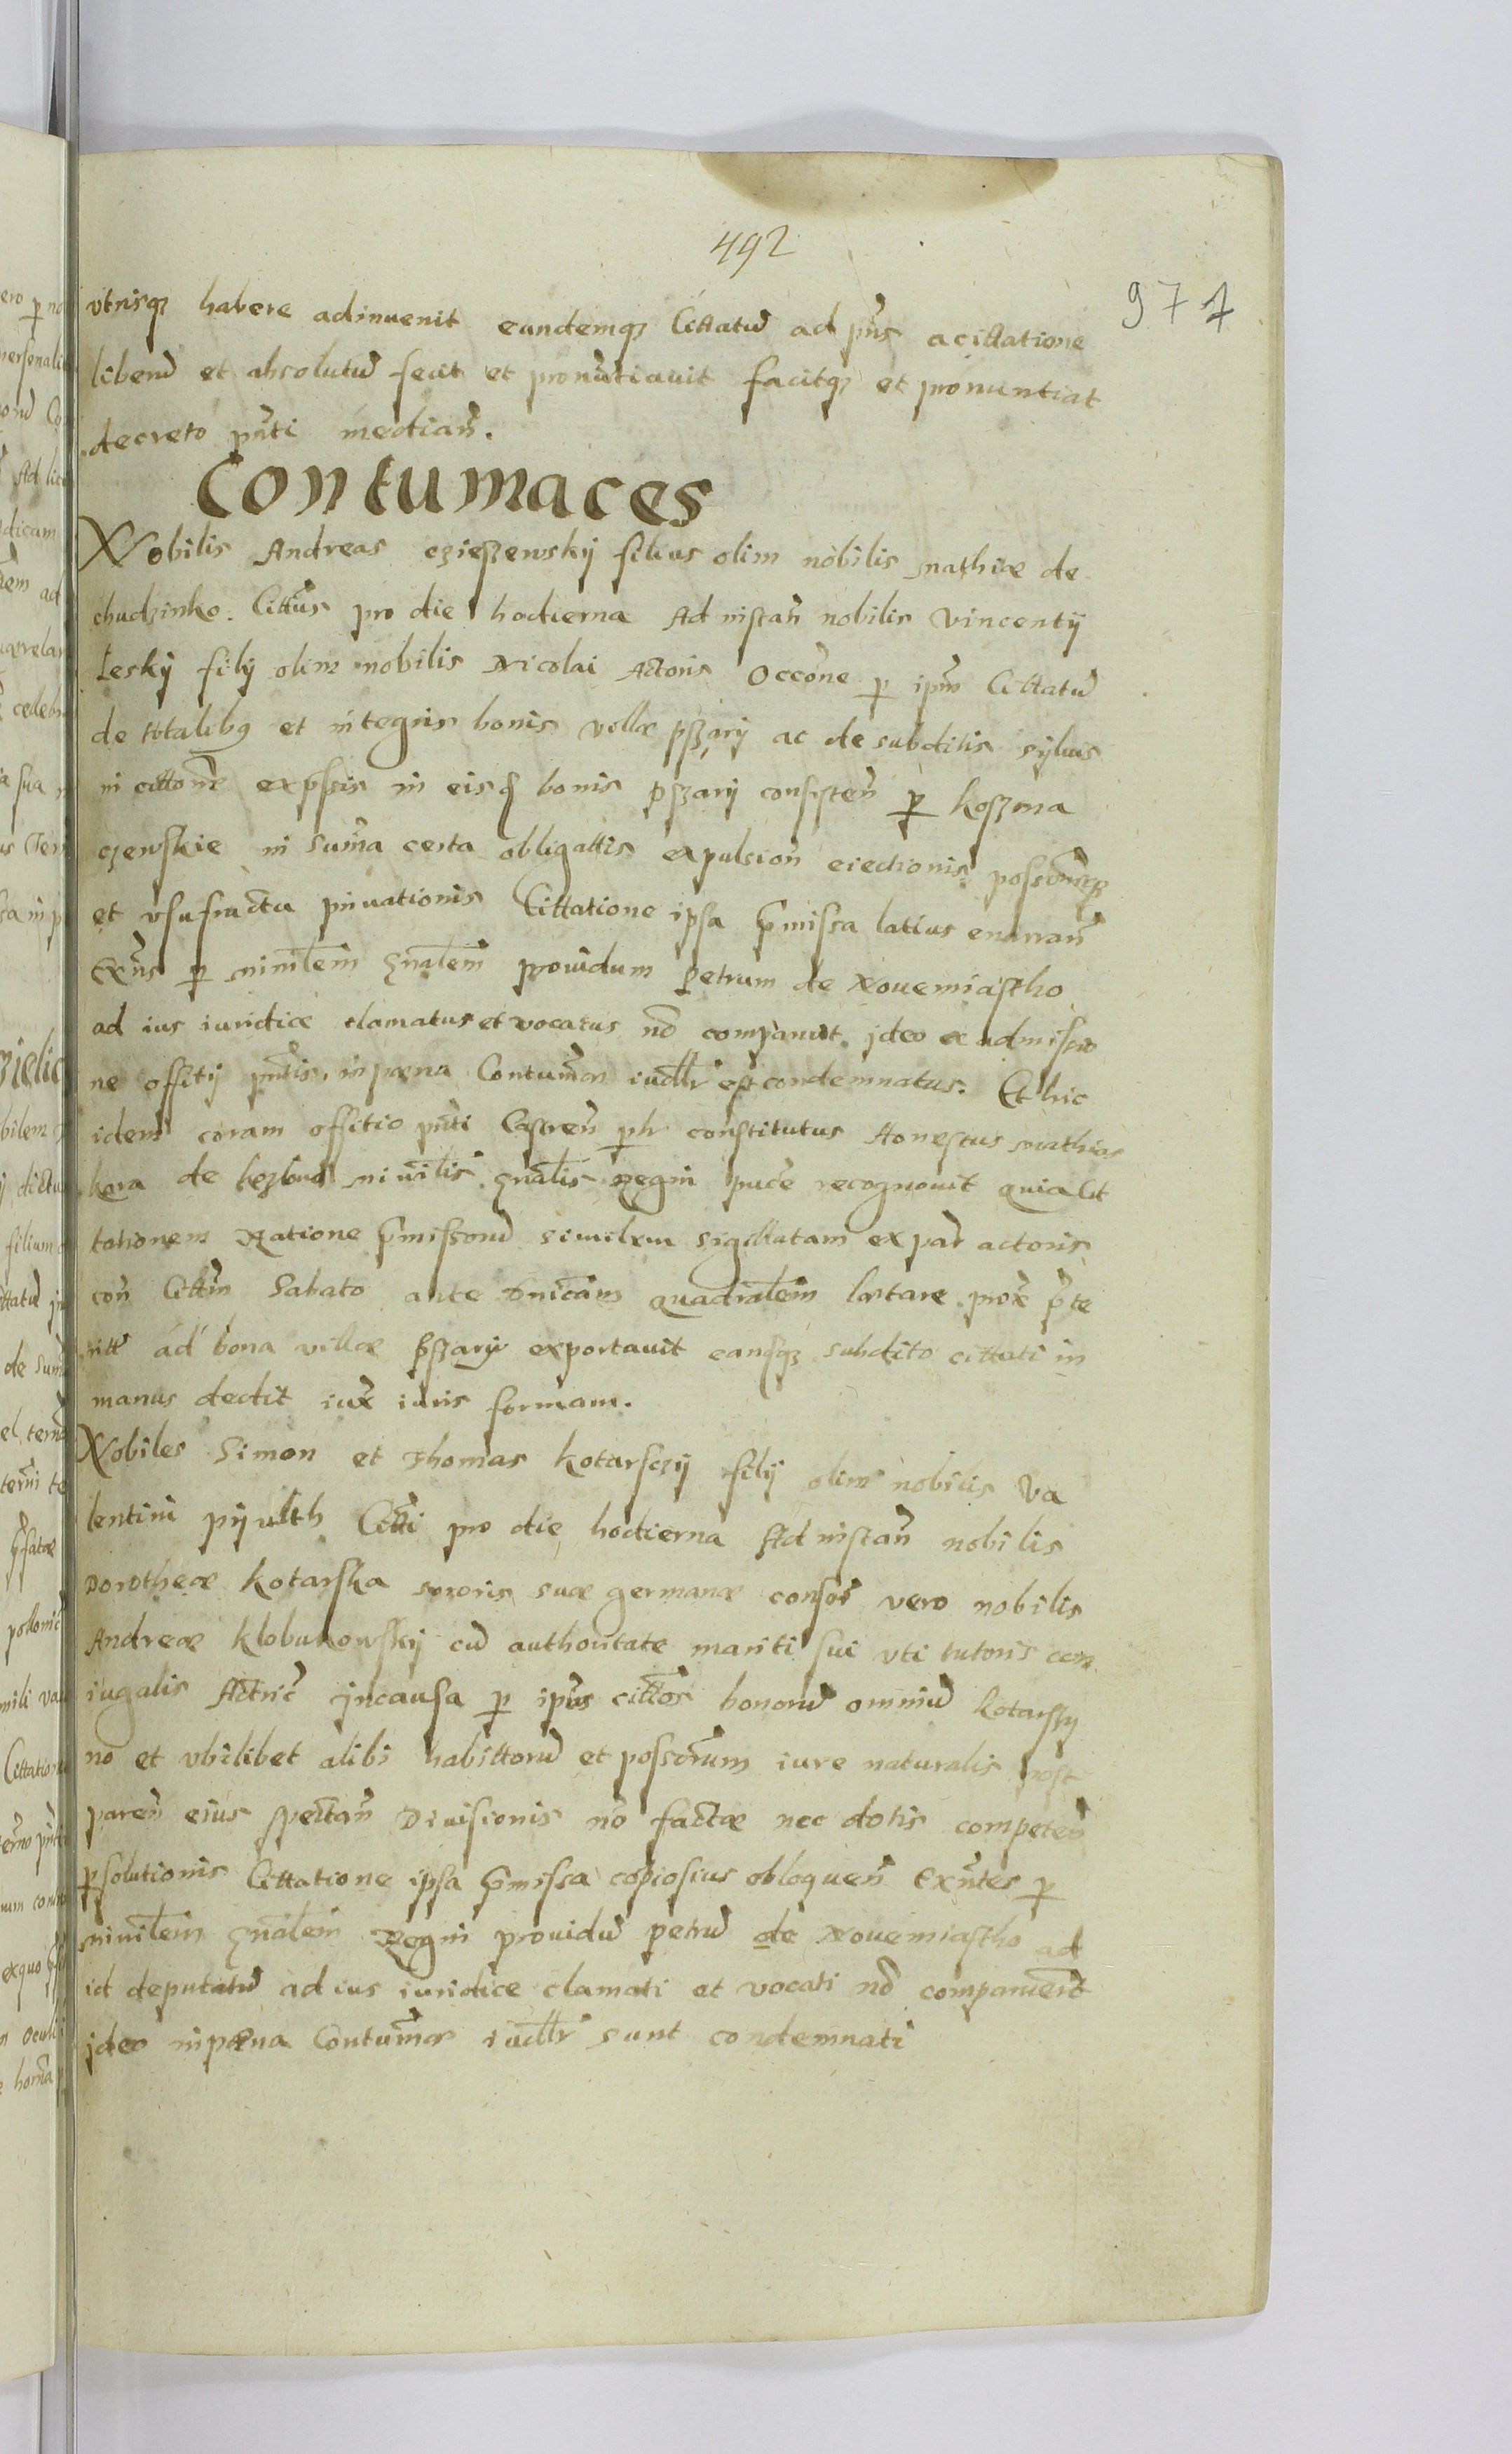 492
971
vtrisq3 habere adinuenit eandemq3 Cittatu ad pns acittatione
liberu et absolutu fecit et pronutiauit facitq3 et pronuntiat
decreto pnti median.
Contumaces
Nobilis Andreas czieszewskij filius olim nobilis mathiae de
chudzinko. Cittus pro die hodierna Ad instan nobilis Vincentij
Leskij filij olim nobilis Nicolai Actoris Occone p ipm Cittatu
de totalibq et integris bonis villae pszarij ac de subditis syluis
in cittone expssis in eisd bonis pszarij consisten p koszma
czewskie in Suma certa obligattis expulsion eiectionis
et vsufructu priuationis Cittatione ipsa pmissa latius enarran
Exns p minrlem gnalem prouidum Petrum de Nouemiastho
ad ius iuridice clamatus et vocatus no comparuit. jdeo ex admissio
ne offitij pntis, inpaena Contumar iudllr est condemnatus. Et hic
idem coram offitio pnti Castren plr constitutus Honestus mathias
kora de minrlis gnalis Regni puce recognouit quia Cit
tationem Ratione pmissoru similem sigillatam ex par actoris
con Cittm Sabato ante Dnicam quadralem laetare prox pte
ritt ad bona villae pszarij exportauit eamq3 subdito cittati in
manus dedit iux iuris formam.
Nobiles Simon et Thomas kotarsczij filij olim nobilis Va
lentini pijulth Citti pro die hodierna Ad instan nobilis
Dorotheae kotarska sororis suae germanae consor vero nobilis
Andreae klobukowskij cu authoritate mariti sui vti tutoris con
iugalis Actric jncausa p ipos cittos bonoru omniu kotarssy
no et vbilibet alibi habittoru et possorum iure naturalis post
paren eius spectan Diuisionis no factae nec dotis competen
psolutionis Cittatione ipsa pmissa copiosius obloquen Exntes p
minrlem gnalem Regni prouidu petru de Nouemiastho ad
id deputatu ad ius iuridice clamati et vocati no comparuert
jdeo inpaena Contumar iudllr sunt condemnati